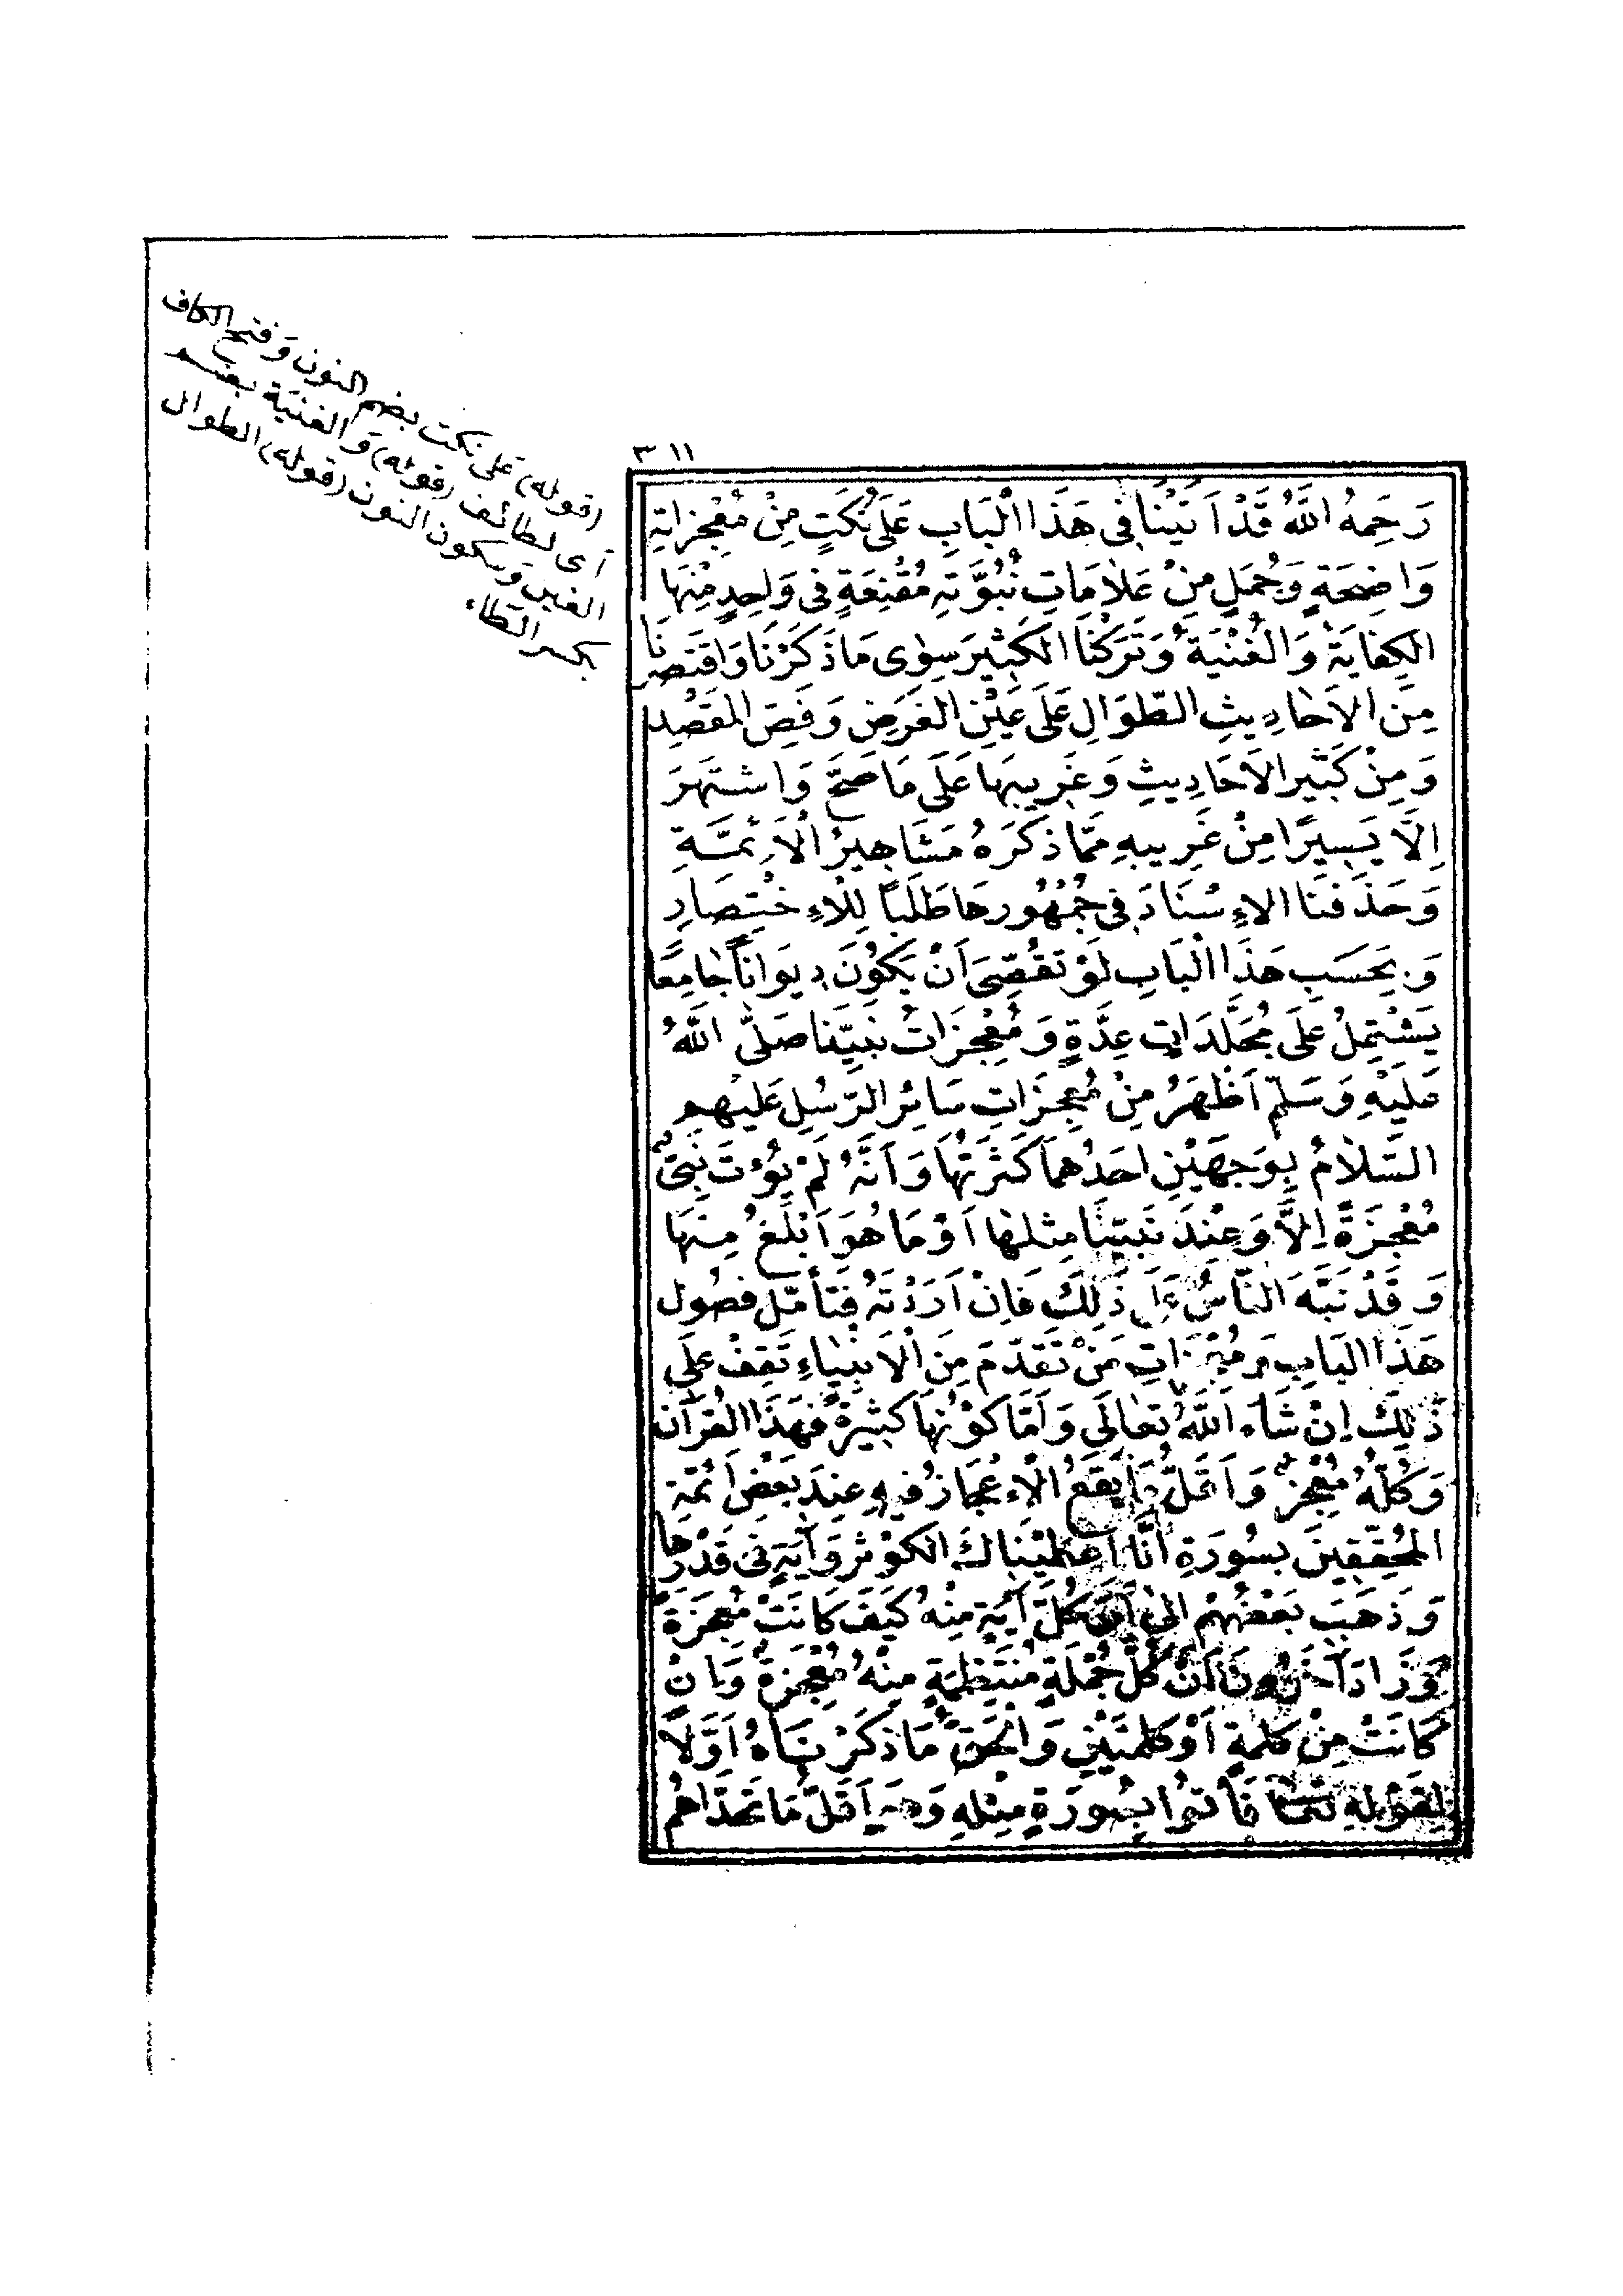 ٣١١
رَحِمَهُ اللَّهُ قَدْ اَتَيْنَا فِى هَذَا الْبَابِ عَلَى نُكَتٍ مِنْ مُعْجِزَاتِهِ
وَاضِحَةٍ وَجُمَلٍ مِنْ عَلَامَاتِ نُبُوَّتِهِ مُقْنِعَةٍ فِى وَاحِدٍ مِنْهَا
الْكِفَايَةُ وَالْغُنْيَةُ وَتَرَكْنَا الْكَثِيرَ سِوَى مَا ذَكَرْنَا وَاقْتَصَرْنَا
مِنَ الْاَحَادِيثِ الطِّوَالِ عَلَى عَيْنِ الْغَرَضِ وَفَصِّ الْمَقْصِدِ
وَمِنْ كَثِيرِ الْاَحَادِيثِ وَغَرِيبِهَا عَلَى مَا صَحَّ وَاشْتَهَرَ
اِلَّا يَسِيرًا مِنْ غَرِيبِهِ مِمَّا ذَكَرَهُ مَشَاهِيرُ الْاَئِمَّةِ
وَحَذَفْنَا الْاِسْنَادَ فِى جُمْهُورِهَا طَلَبًا لِلْاِخْتِصَارِ
وَبِحَسَبِ هَذَا الْبَابِ لَوْ تُقُصِّىَ اَنْ يَكُونَ دِيوَانًا جَامِعًا
يَشْتَمِلُ عَلَى مُجَلَّدَاتٍ عِدَّةٍ وَمُعْجِزَاتُ نَبِيِّنَا صَلَّى اللَّهُ
عَلَيْهِ وَسَلَّمَ اَظْهَرُ مِنْ مُعْجِزَاتِ سَائِرِ الرُّسُلِ عَلَيْهِمِ
السَّلَامُ بِوَجْهَيْنِ اَحَدُهُمَا كَثْرَتُهَا وَاَنَّهُ لَمْ يُؤْتَ نَبِىٌّ
مُعْجِزَةً اِلَّا وَعِنْدَ نَبِيِّنَا مِثْلُهَا اَوْ مَا هُوَ اَبْلَغُ مِنْهَا
وَقَدْ نَبَّهَ النَّاسُ عَلَى ذَلِكَ فَاِنْ اَرَدْتَهُ فَتَأَمَّلْ فُصُولَ
هَذَا الْبَابِ وَمُعْجِزَاتِ مَنْ تَقَدَّمَ مِنَ الْاَنْبِيَاءِ تَقِفْ عَلَى
ذَلِكَ اِنْ شَاءَ اللَّهُ تَعَالَى وَاَمَّا كَوْنُهَا كَثِيرَةً فَهَذَا الْقُرْآنُ
وَكُلُّهُ مُعْجِزٌ وَاَقَلُّ مَا يَقَعُ الْاِعْجَازُ فِيهِ عِنْدَ بَعْضِ اَئِمَّةِ
الْمُحَقِّقِينَ بِسُورَةِ اِنَّا اَعْطَيْنَاكَ الْكَوْثَرَ وَآيَةٍ فِى قَدْرِهَا
وَذَهَبَ بَعْضُهُمْ اِلَى اَنَّ كُلَّ آيَةٍ مِنْهُ كَيْفَ كَانَتْ مُعْجِزَةٌ
وَزَادَ آخَرُونَ اَنَّ كُلَّ جُمْلَةٍ مُنْتَظِمَةٍ مِنْهُ مُعْجِزَةٌ وَاِنْ
كَانَتْ مِنْ كَلِمَةٍ اَوْ كَلِمَتَيْنِ وَالْحَقُّ مَا ذَكَرْنَاهُ اَوَّلًا
لِقَوْلِهِ تَعَالَى فَأْتُوا بِسُورَةٍ مِثْلِهِ وَهِىَ اَقَلُّ مَا تَحَدَّاهُمْ
(قوله) عَلَى نكت بضم النون وَفتح الكاف
اَى لطائف (قوله) وَالغنية بضم
الغين وَسكون النون (قوله) الطوال
بكسر الطاء